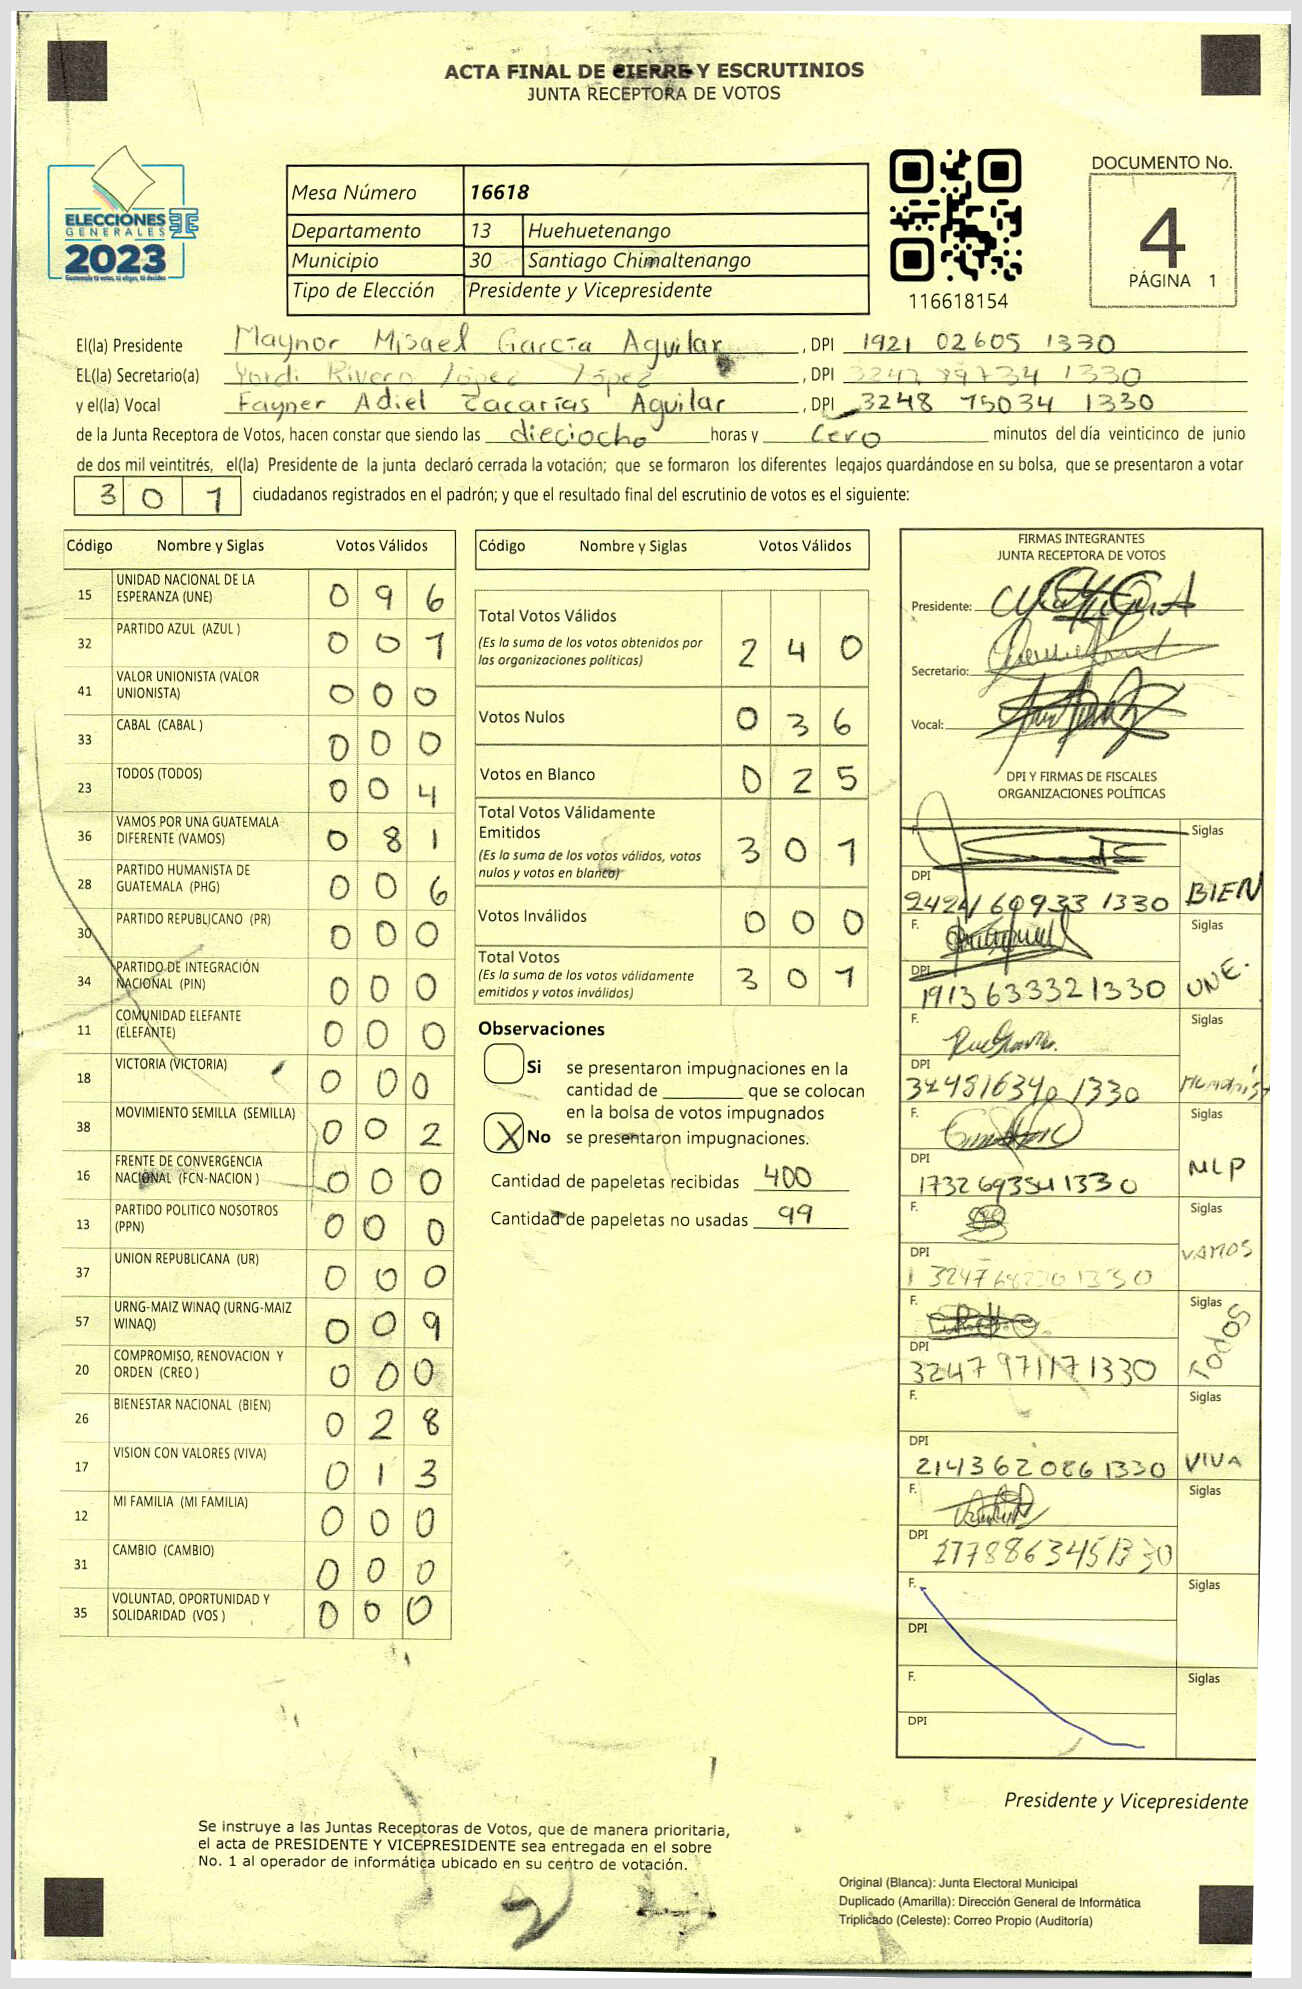 ACTA FINAL DE CIERRE Y ESCRUTINIOS
JUNTA RECEPTORA DE VOTOS
ELECCIONES
GENERALES
2023
Mesa Número 16618
Departamento 13 Huehuetenango
Municipio 30 Santiago Chimaltenango
Tipo de Elección Presidente y Vicepresidente
116618154
DOCUMENTO No.
4
PÁGINA 1
El(la) Presidente Maynor Misael García Aguilar, DPI 1921 02605 1330
EL(la) Secretario(a) Yordi Rivero López López, DPI 1330
y el(la) Vocal Fayner Adiel Zacarías Aguilar, DPI 3248 75034 1330
de la Junta Receptora de Votos, hacen constar que siendo las dieciocho horas y cero minutos del día veinticinco de junio
de dos mil veintitrés, el(la) Presidente de la junta declaró cerrada la votación; que se formaron los diferentes legajos guardándose en su bolsa, que se presentaron a votar
301 ciudadanos registrados en el padrón; y que el resultado final del escrutinio de votos es el siguiente:
Código Nombre y Siglas Votos Válidos
15 UNIDAD NACIONAL DE LA ESPERANZA (UNE) 0 9 6
32 PARTIDO AZUL (AZUL ) 0 0 1
41 VALOR UNIONISTA (VALOR UNIONISTA) 0 0 0
33 CABAL (CABAL ) 0 0 0
23 TODOS (TODOS) 0 0 4
36 VAMOS POR UNA GUATEMALA DIFERENTE (VAMOS) 0 8 1
28 PARTIDO HUMANISTA DE GUATEMALA (PHG) 0 0 6
30 PARTIDO REPUBLICANO (PR) 0 0 0
34 PARTIDO DE INTEGRACIÓN NACIONAL (PIN) 0 0 0
11 COMUNIDAD ELEFANTE (ELEFANTE) 0 0 0
18 VICTORIA (VICTORIA) 0 0 0
38 MOVIMIENTO SEMILLA (SEMILLA) 0 0 2
16 FRENTE DE CONVERGENCIA NACIONAL (FCN-NACION ) 0 0 0
13 PARTIDO POLITICO NOSOTROS (PPN) 0 0 0
37 UNION REPUBLICANA (UR) 0 0 0
57 URNG-MAIZ WINAQ (URNG-MAIZ WINAQ) 0 0 9
20 COMPROMISO, RENOVACION Y ORDEN (CREO ) 0 0 0
26 BIENESTAR NACIONAL (BIEN) 0 2 8
17 VISION CON VALORES (VIVA) 0 1 3
12 MI FAMILIA (MI FAMILIA) 0 0 0
31 CAMBIO (CAMBIO) 0 0 0
35 VOLUNTAD, OPORTUNIDAD Y SOLIDARIDAD (VOS ) 0 0 0
Código Nombre y Siglas Votos Válidos
Total Votos Válidos 2 4 0
(Es la suma de los votos obtenidos por
las organizaciones políticas)
Votos Nulos 0 3 6
Votos en Blanco 0 2 5
Total Votos Válidamente
Emitidos 3 0 1
(Es la suma de los votos válidos, votos
nulos y votos en blanco)
Votos Inválidos 0 0 0
Total Votos 3 0 1
(Es la suma de los votos válidamente
emitidos y votos inválidos)
Observaciones
Si se presentaron impugnaciones en la
cantidad de ________ que se colocan
en la bolsa de votos impugnados
X No se presentaron impugnaciones.
Cantidad de papeletas recibidas 400
Cantidad de papeletas no usadas 99
FIRMAS INTEGRANTES
JUNTA RECEPTORA DE VOTOS
Presidente:
Secretario:
Vocal:
DPI Y FIRMAS DE FISCALES
ORGANIZACIONES POLÍTICAS
F. Siglas
DPI 2424 60933 1330 BIEN
F. Siglas
DPI 1913 63332 1330 UNE.
F. Siglas
DPI 324816340 1330
F. Siglas
DPI 1732 69354 1330 MLP
F. Siglas
DPI VAMOS
F. Siglas
DPI 3247 97117 1330 TODOS
F. Siglas
DPI 2143 62086 1330 VIVA
F. Siglas
DPI 1778863451330
F. Siglas
DPI
F. Siglas
DPI
Presidente y Vicepresidente
Se instruye a las Juntas Receptoras de Votos, que de manera prioritaria,
el acta de PRESIDENTE Y VICEPRESIDENTE sea entregada en el sobre
No. 1 al operador de informática ubicado en su centro de votación.
Original (Blanca): Junta Electoral Municipal
Duplicado (Amarilla): Dirección General de Informática
Triplicado (Celeste): Correo Propio (Auditoría)